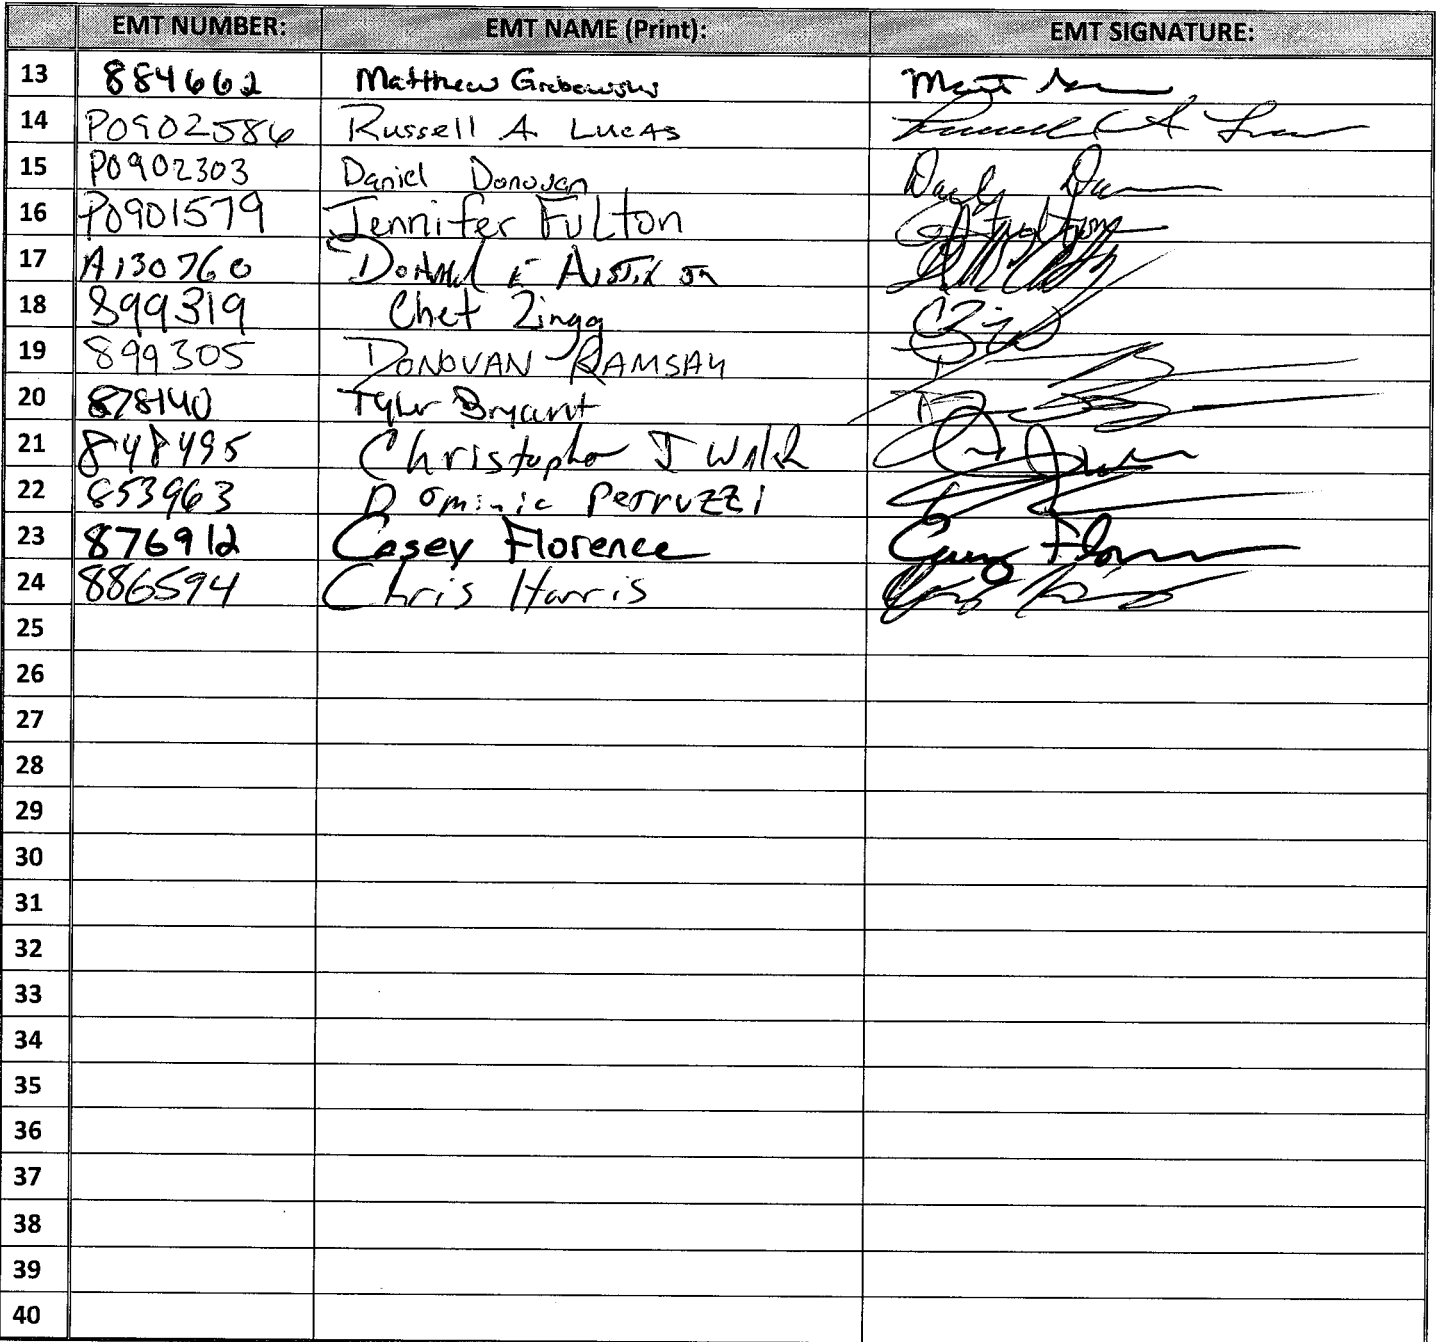 EMT NUMBER: EMT NAME (Print): EMT SIGNATURE:
13 884662 Matthew Grabowski
14 P0902586 Russell A. Lucas
15 P0902303 Daniel Donovan
16 P0901579 Jennifer Fulton
17 A130760 Austin JR
18 899319 Chet Zingg
19 899305 DONOVAN RAMSAY
20 878140 Tyler Bryant
21 848495 Christopher J Walck
22 853963 Dominic Perruzzi
23 876912 Casey Florence
24 886594 Chris Harris
25
26
27
28
29
30
31
32
33
34
35
36
37
38
39
40